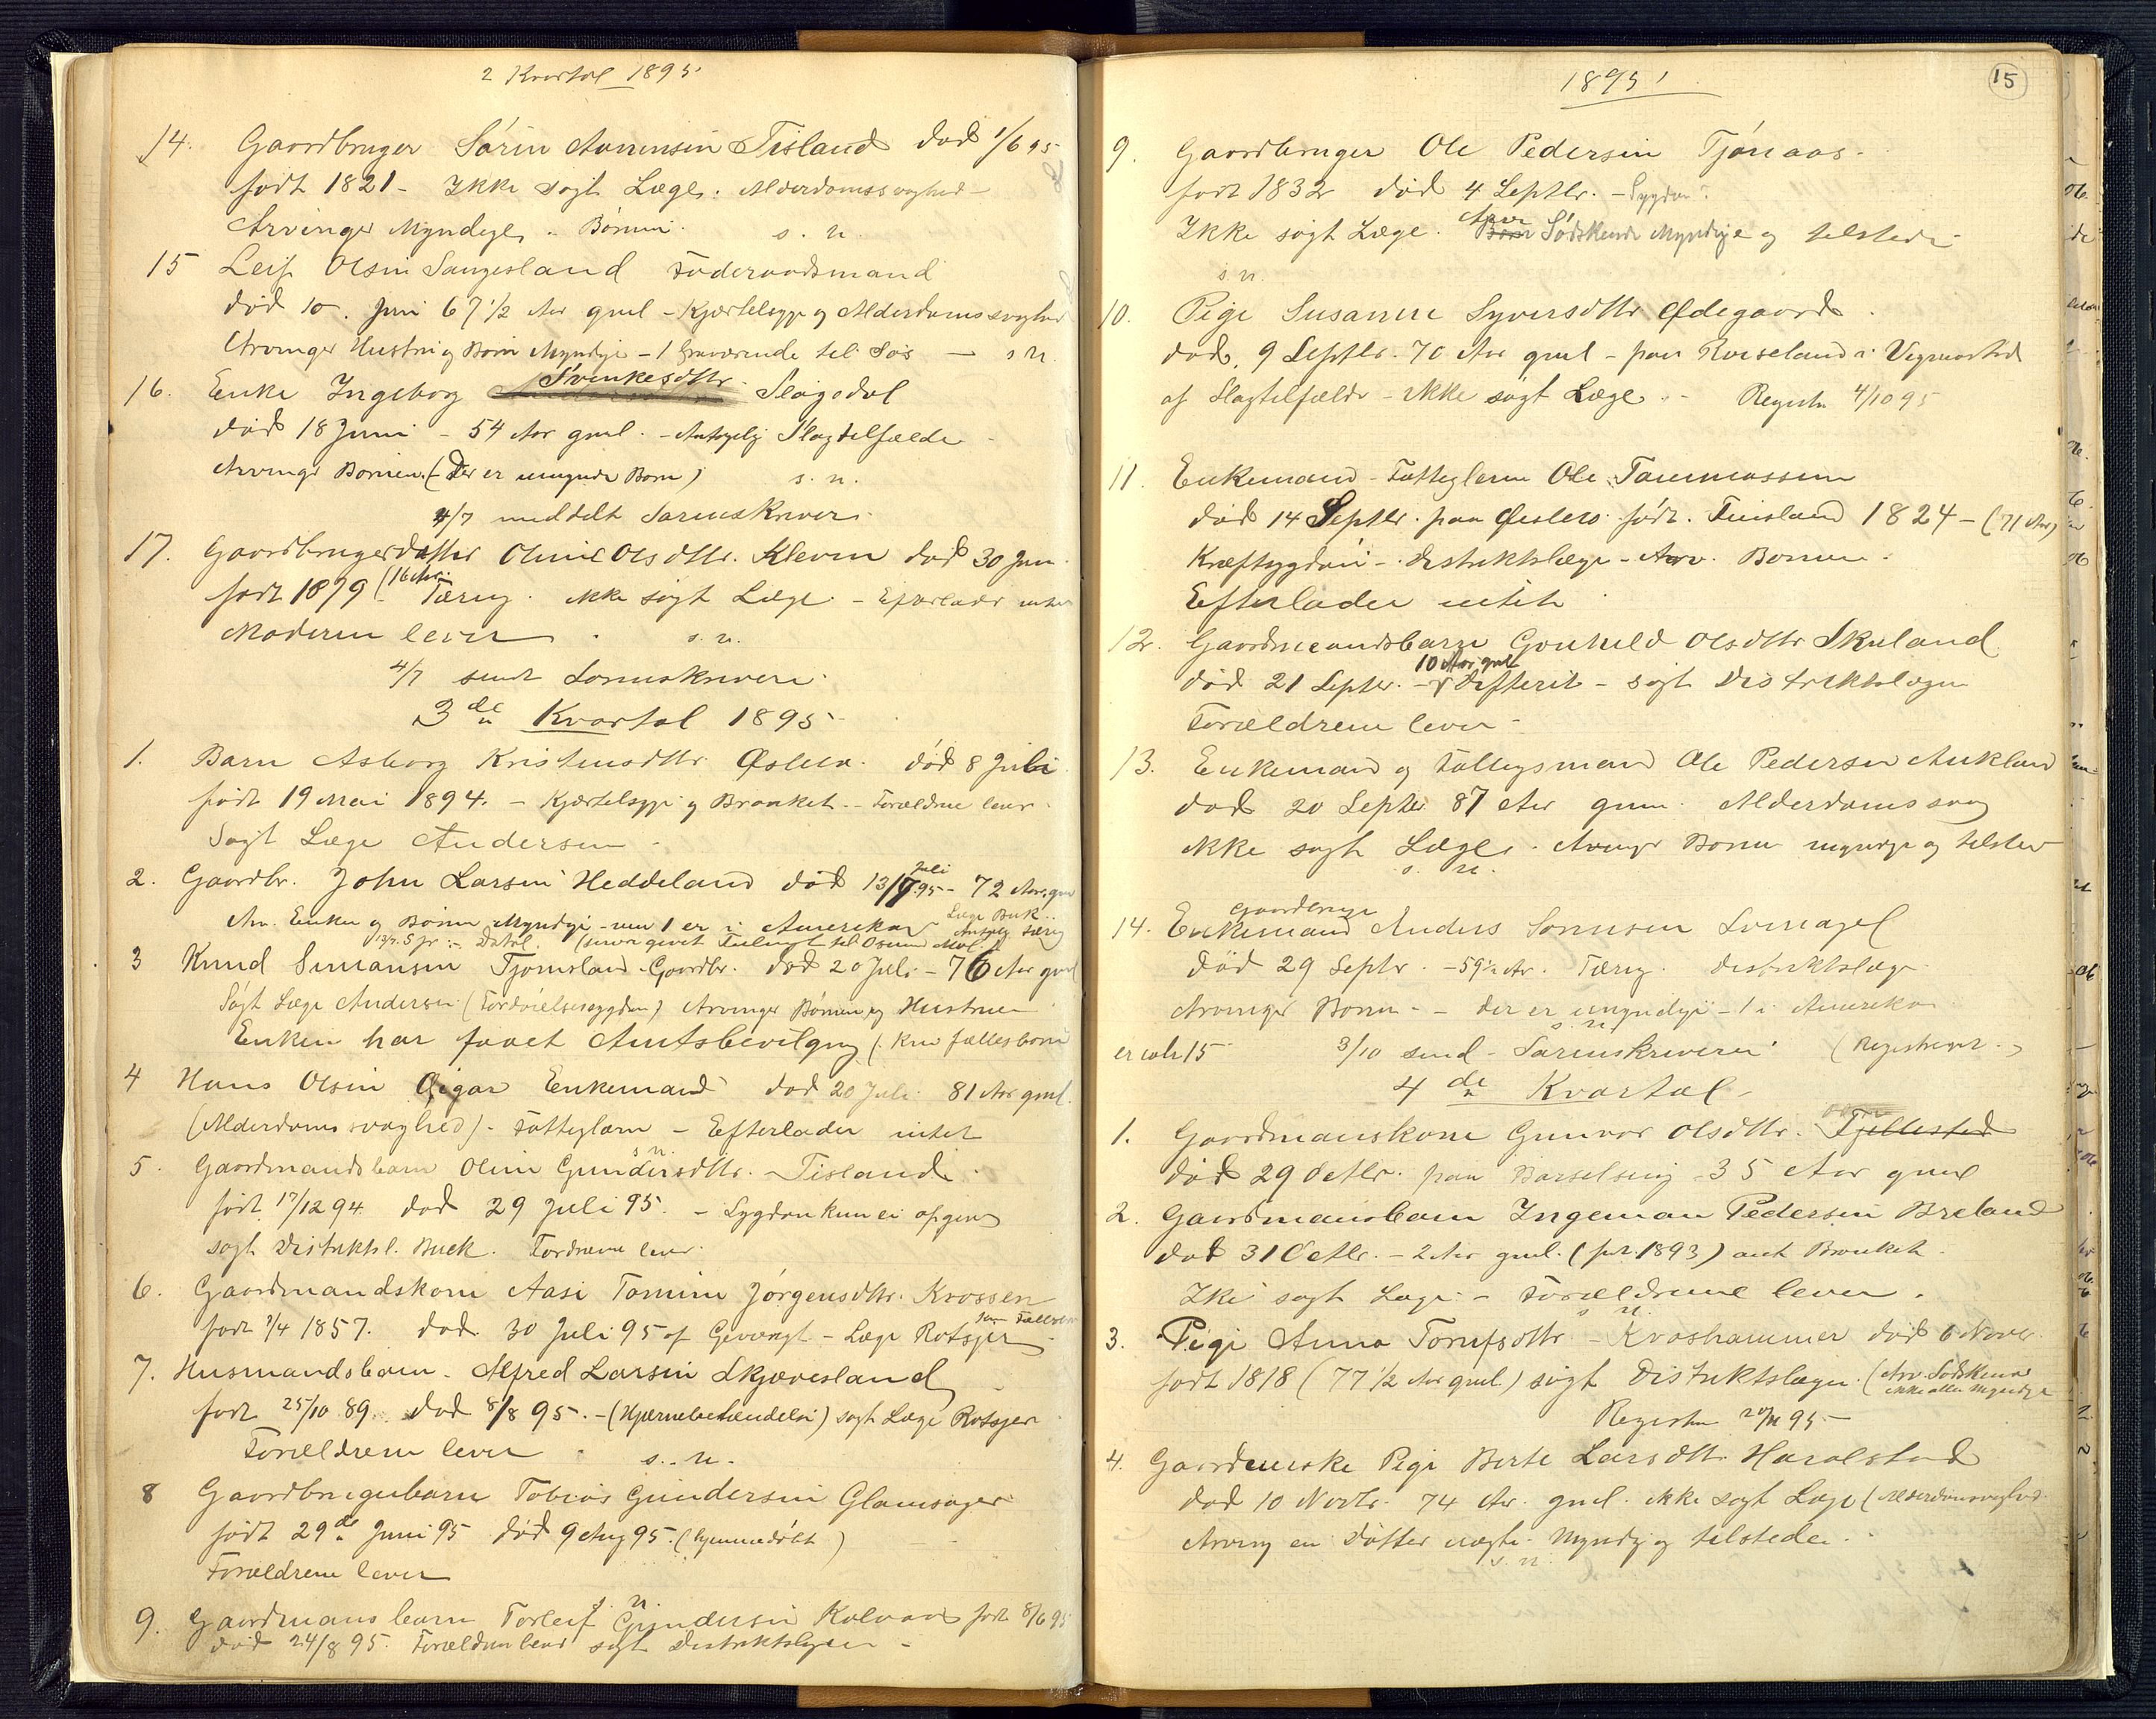 2 Kvartal 1895
14. Gaardbruger Sørin Aanensin Tisland død 1/6 95
født 1821 - Ikke søgt Læge. Alderdomssvaghed -
Arvinger Myndige. Børnin. s. n.
15 Leif Olsin Saugesland Føderaadsmand
død 10. Juni 67 1/2 Aar gml - Kjærtelsyge og Alderdomssvaghed
Arvinger Hustru og Børn Myndige - 1 fraværende til Søs - s n.
16. Enke Ingeborg Svenkesdttr. Slagsdal
død 18 Juni - 54 Aar gml. - Antagelig Slagtilfælde -
Arvinge Børnene (Der er umynde Børn) s. n.
4/7 meddelt Sorenskriver.
17. Gaardbrugerdatter Oline Olsdttr. Kleven død 30 Juni.
født 1879 (16 Aar. - Tæring. ikke søgt Læge. - Efterlader intet
Moderen lever. s. n.
4/7 sendt Sorenskriveren.
3de Kvartal 1895
1. Barn Asborg Kristensdttr Øslebø. død 8 Juli
født 19 Mai 1894. - Kjærtelsyge og Bronket. - Forældrene lever.
Søgt Læge Andersen.
2. Gaardbr. John Larsen Heddeland død 13/7 Juli 95 - 72 Aar gml
Arv. Enken og Børn Myndige - men 1 er i Amerika Læge Buck. Antagelig Tæring
3 Knud Simonsen Tjomsland. Gaardbr. død 20 Juli - 76 Aar gml
Søgt Læge Andersen (Fordøielsessygdom) Arvinger Børnene og Hustruen
Enken har faaet Amtsbevilgning (kun fællesbørn
4 Hans Olsin Øigar Enkemand død 20 Juli 81 Aar gml.
(Alderdomssvaghed) - Fattiglem - Efterlader intet
s n.
5. Gaardmandsbarn Oline Gundersdttr. - Tisland.
født 17/12 94. død 29 Juli 95. - Sygdom kun ei opgives
søgt Distriktsl. Buck. Forældrene lever.
6. Gaardmandskone Aase Tomine Jørgensdttr. Krossen
født 7/4 1857. død 30 Juli 95 af - Læge Rotsjer
7. Husmandsbarn. Alfred Larsin Skjævesland
født 25/10 89. død 8/8 95. - (Hjernebetændelse) søgt Læge Rotsjer
Forældrene lever. s. n.
8 Gaardbrugerbarn Tobias Gundersin Glamsager
født 29de Juni 95 død 9 Aug 95. (hjemmedøbt)
Forældrene lever
s. n.
9. Gaardmansbarn Torleif Gundersin Kulaas født 8/6 95
død 24/8 95. Forældrene lever søgt Distriktslægen -
1895
15
9. Gaardbruger Ole Pedersin Tjønaas -
født 1832 død 4 Septbr. - Sygdom?
Ikke søgt Læge. Arv Børn Sødskende Myndige og tilstede
s. n.
10. Pige Susanne Syversdttr Ødegaard.
død. 9 Septbr. 70 Aar gml - paa Kvaseland i Vegusdal
af Slagtilfælde - ikke søgt Læge - Registr 4/10 95
11. Enkemand - Fattiglem Ole Tommassen
død 14 Septbr. paa Øislebø født. Finsland 1824 - (71 Aar)
Kræftsygdom - Distriktslæge - Arv. Børnene.
Efterlader intet.
12. Gaardmandsbarn Gonhild Olsdttr Skuland
død 21 Septbr. - 10 Aar gml Difterit - søgt Distriktslægen
Forældrene lever -
13. Enkemand og Fattigsman Ole Pedersen Aukland
død 20 Septbr 87 Aar gml. Alderdomssvag
ikke søgt Læge. Arvinge Børn myndige og tilstede
s. n.
14. Enkemand Gaardbruge Anders Sørensen
død 29 Septbr. - 59 1/2 Ar. Tæring. Distriktslæge
Arvinger Børn. - der er umyndige - 1 i Amerika
s. n.
3/10 send. Sorenskriveren (Registreret.)
4de Kvartal -
1. Gaardmanskone Gunvor Olsdttr. Fjellestad
død 29 Octbr. paa Barselseng 35 Aar gml
2. Gaardmansbarn Ingeman Pedersen Breland
død 31 Octbr. - 2 Aar gml. (født 1893) ant Bronket.
Ike søgt Læge - Forældrene lever.
s n.
3. Pige Anna Torufsdttr - Kvashammer død 6 Novbr.
født 1818 (77 1/2 Aar gml.) søgt Distriktslægen. (Arv. Sødskende ikke alle Myndige
Registr 20/11 95. -
4. Gaardbrukerske Pige Berte Larsdttr Haralstad
død 10 Novbr. 74 Ar. gml. ikke søgt Læge (Alderdomssvaghed.
Arving en Datter uægte. Myndig og tilstede.
s. n.